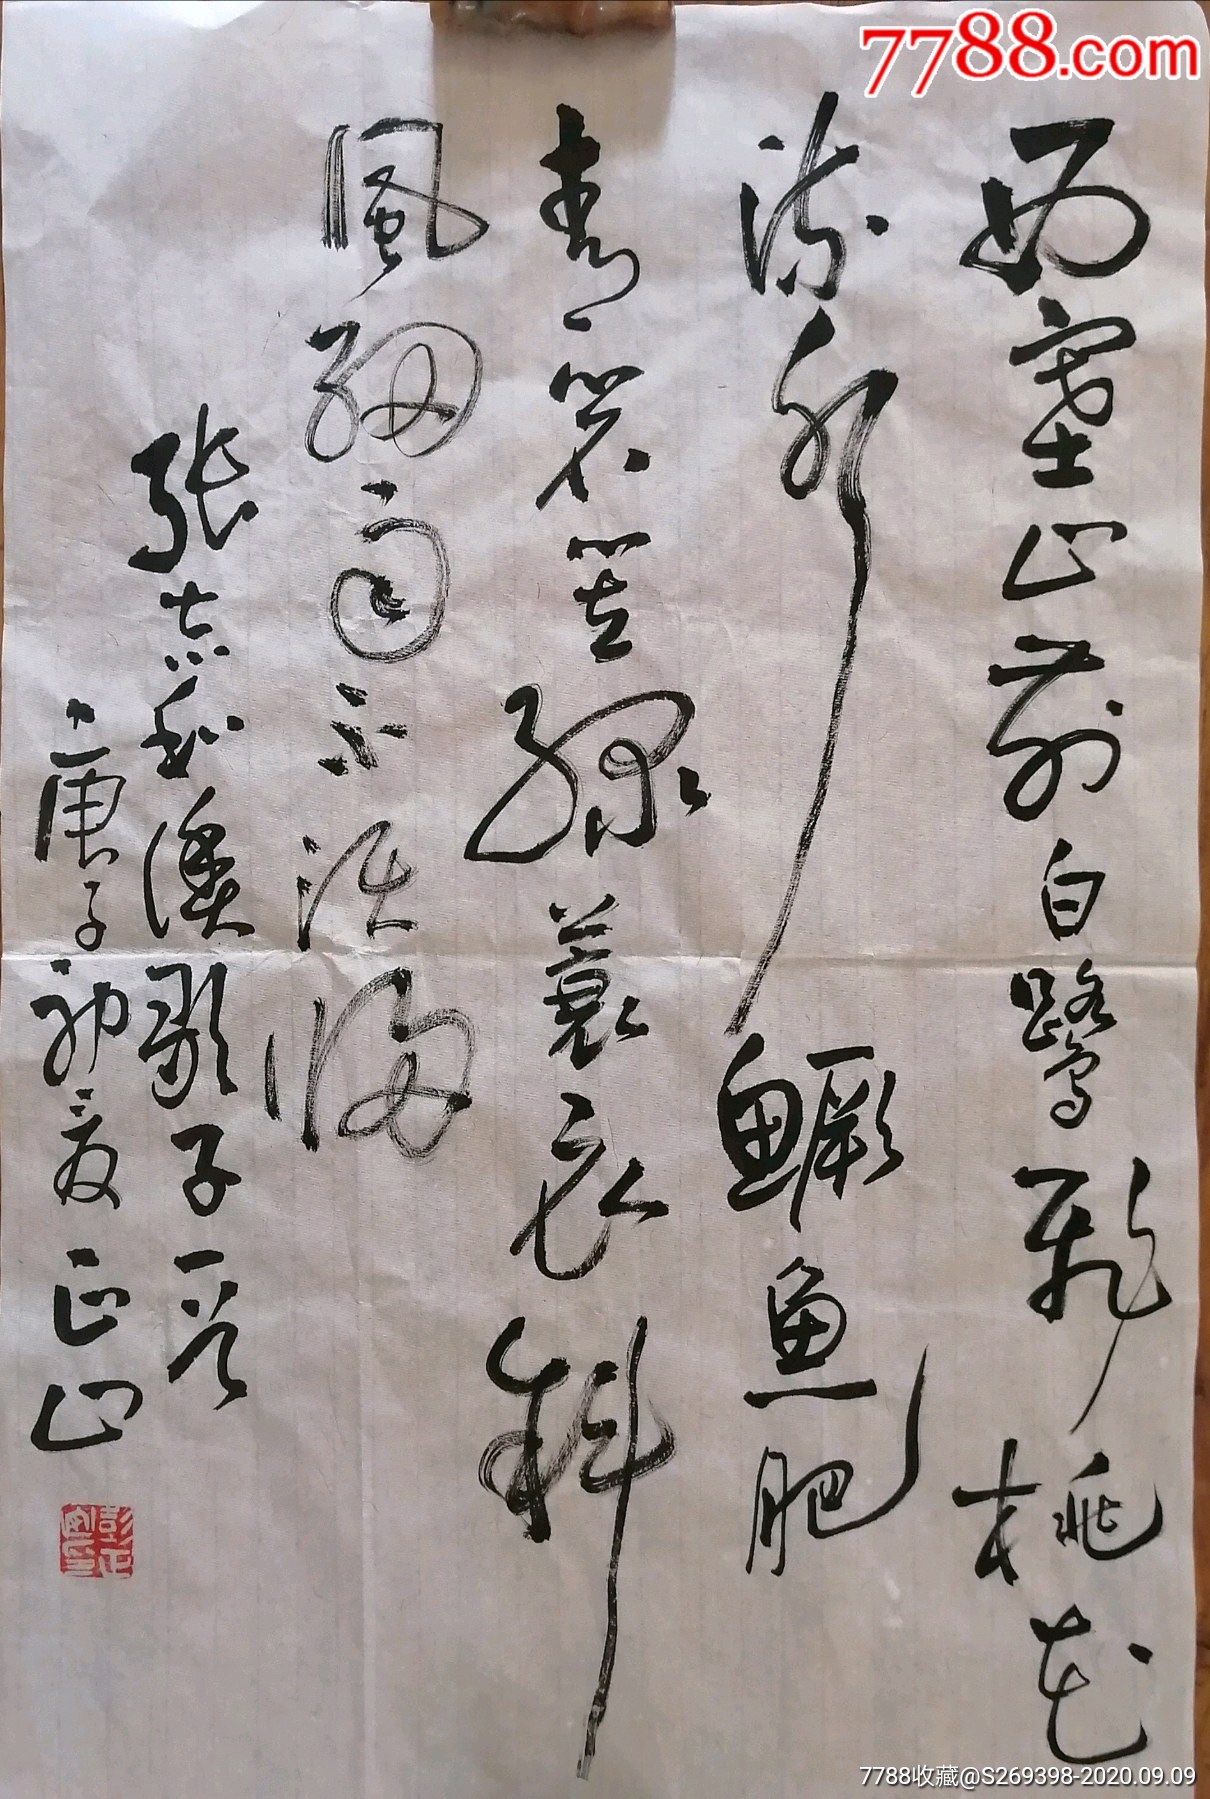 7788.com
西塞山前白鷺飛桃花
流水鱖魚肥
青箬笠綠蓑衣斜
風細雨不須歸
張志和漁歌子一首
庚子初夏正山
7788收藏@S269398-2020.09.09